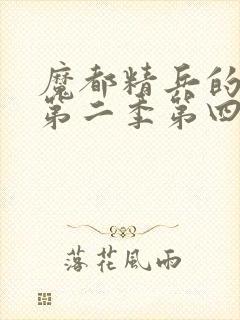 魔都精兵的
第二季第四
落花風雨